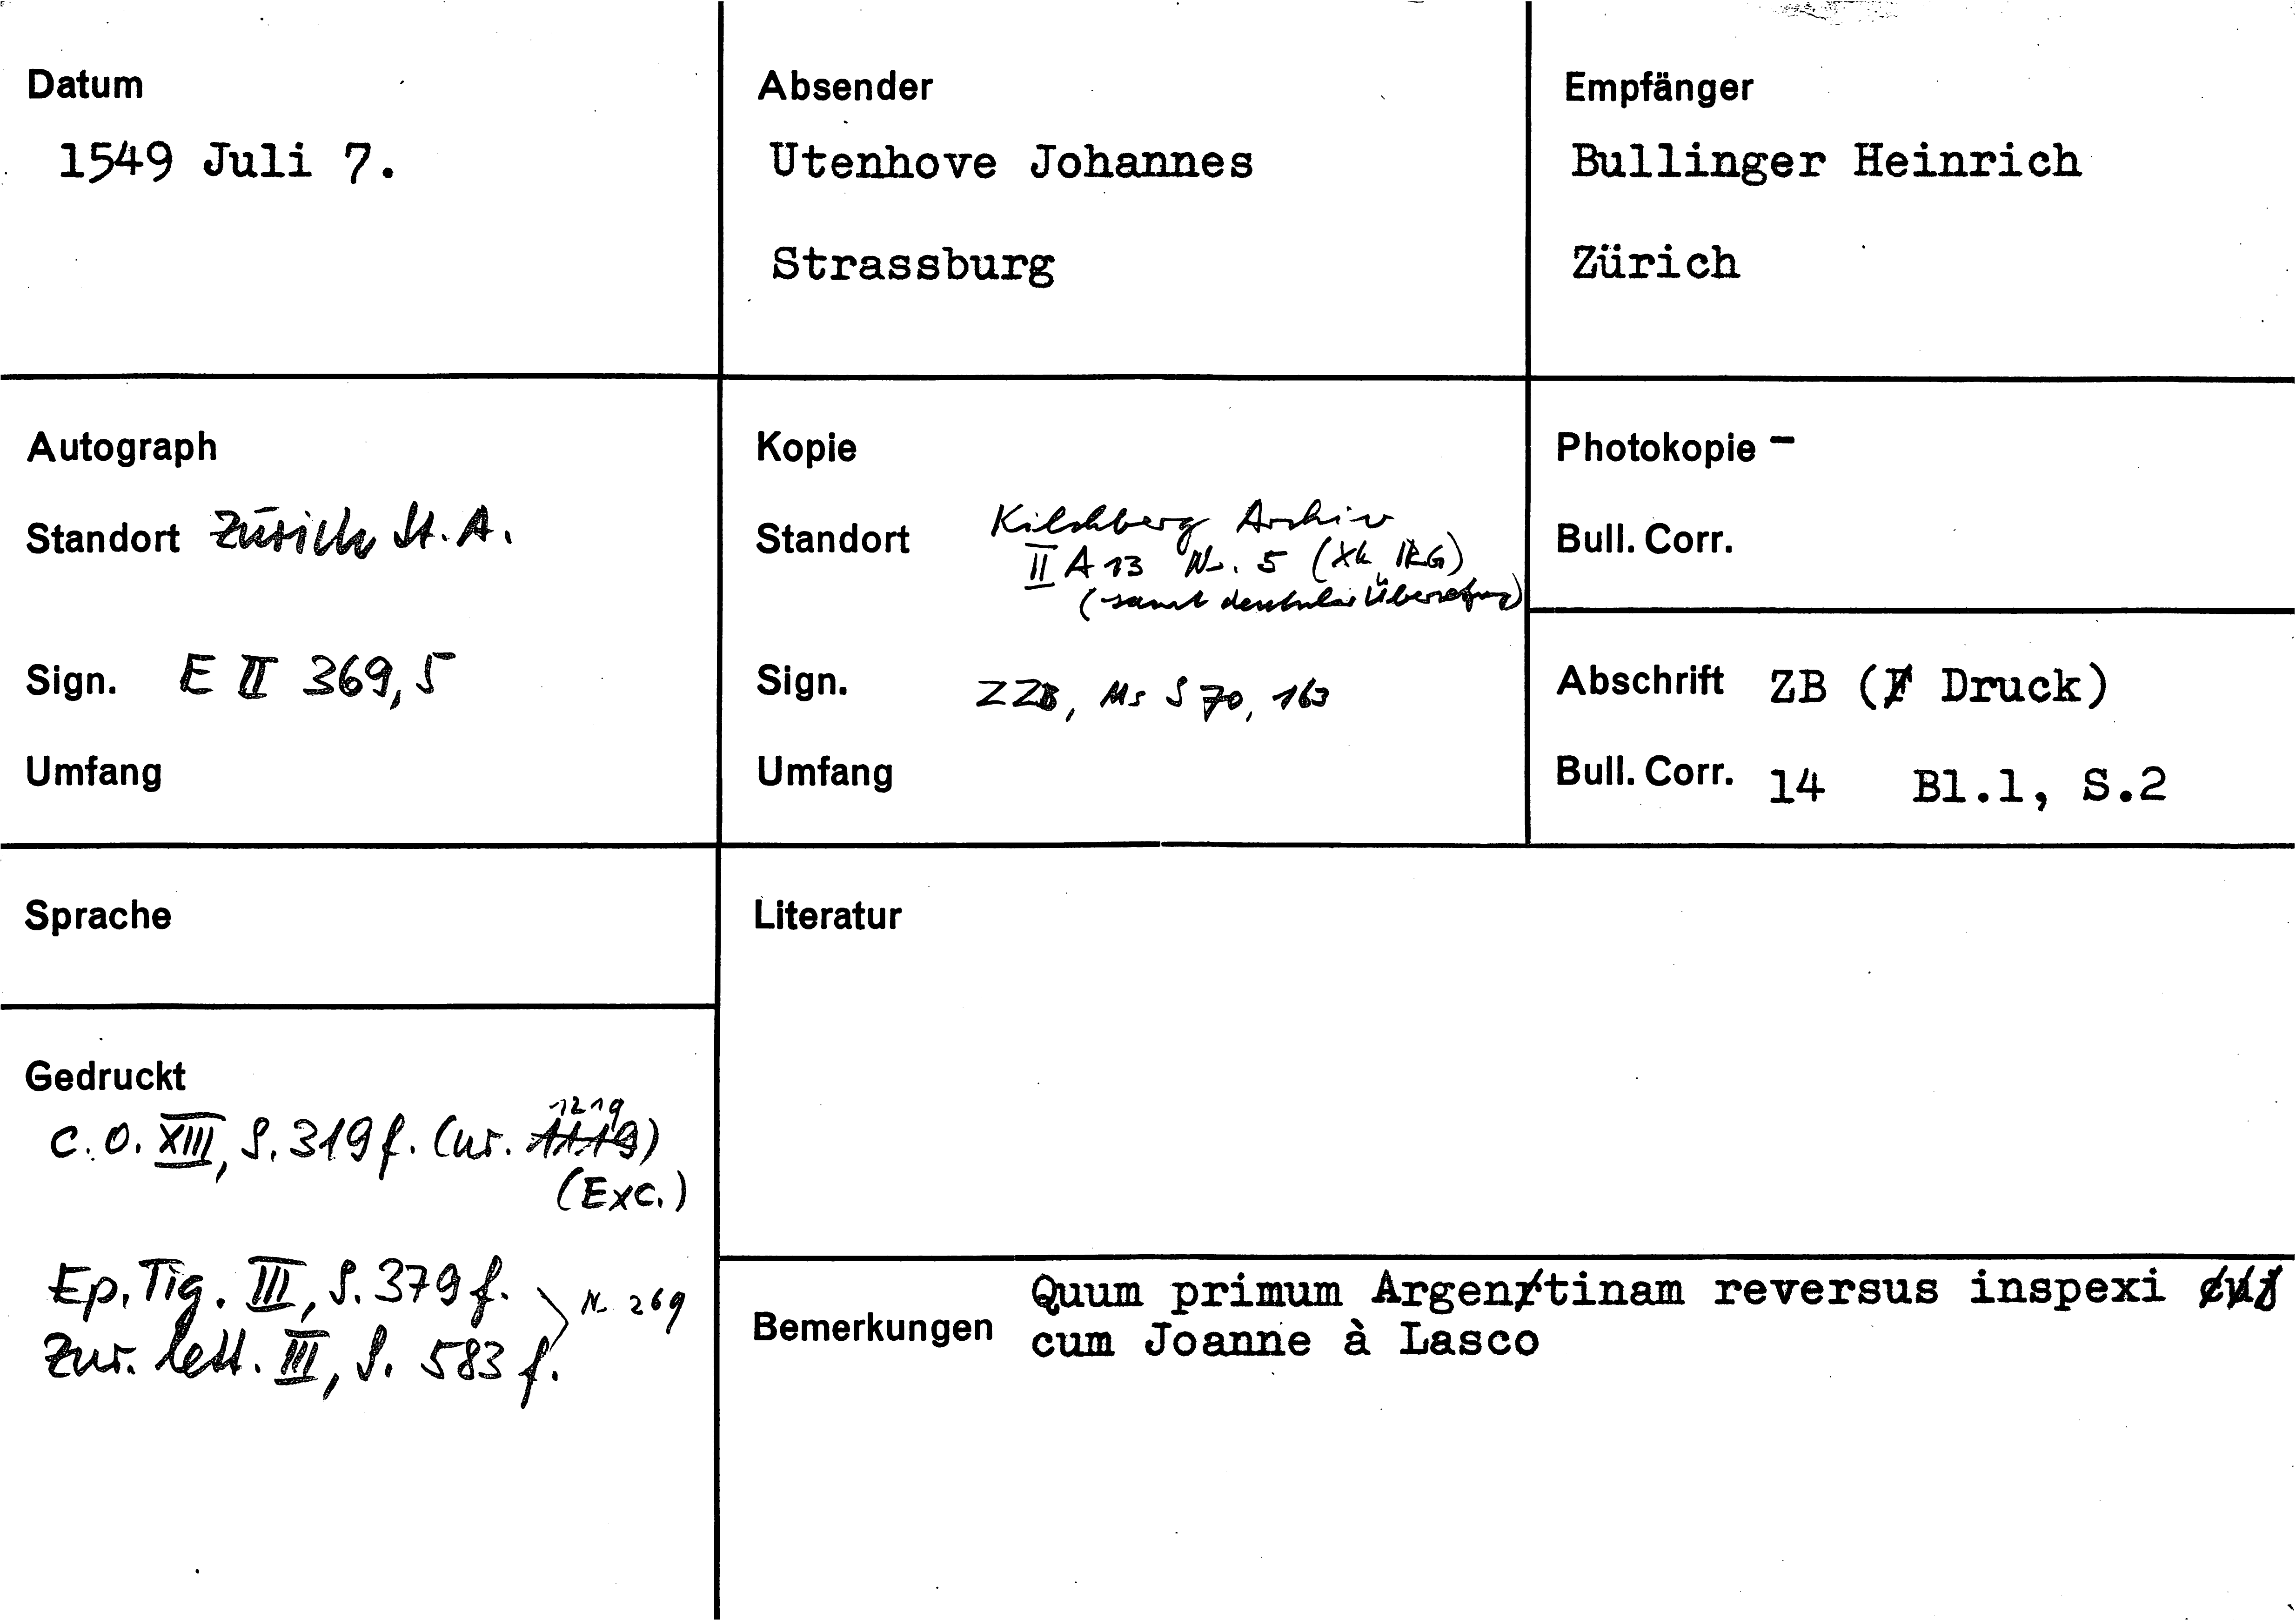 Datum
1549 Juli 7.
Absender
Utenhove Johannes
Strassburg
Empfänger
Bullinger Heinrich
Zürich
Autograph
Standort Zürich St. A.
Sign. E II 369,5
Umfang
Kopie
Standort Kilchberg Archiv
II A 13 Nr. 5 (Xk IRG)
(samt deutscher Übersetzung)
Sign. ZZB, Ms S 70, 163
Umfang
Photokopie -
Bull. Corr.
Abschrift ZB ( Druck)
Bull. Corr. 14 Bl.1, S.2
Sprache
Gedruckt
1219
C.O. XIII, S. 319 f. (nr. 1119)
(Exc.)
Ep. Tig. III, S. 379 f.
N. 269
Zur. lett. III, S. 583 f.
Literatur
Bemerkungen
Quum primum Argentinam reversus inspexi
cum Joanne à Lasco